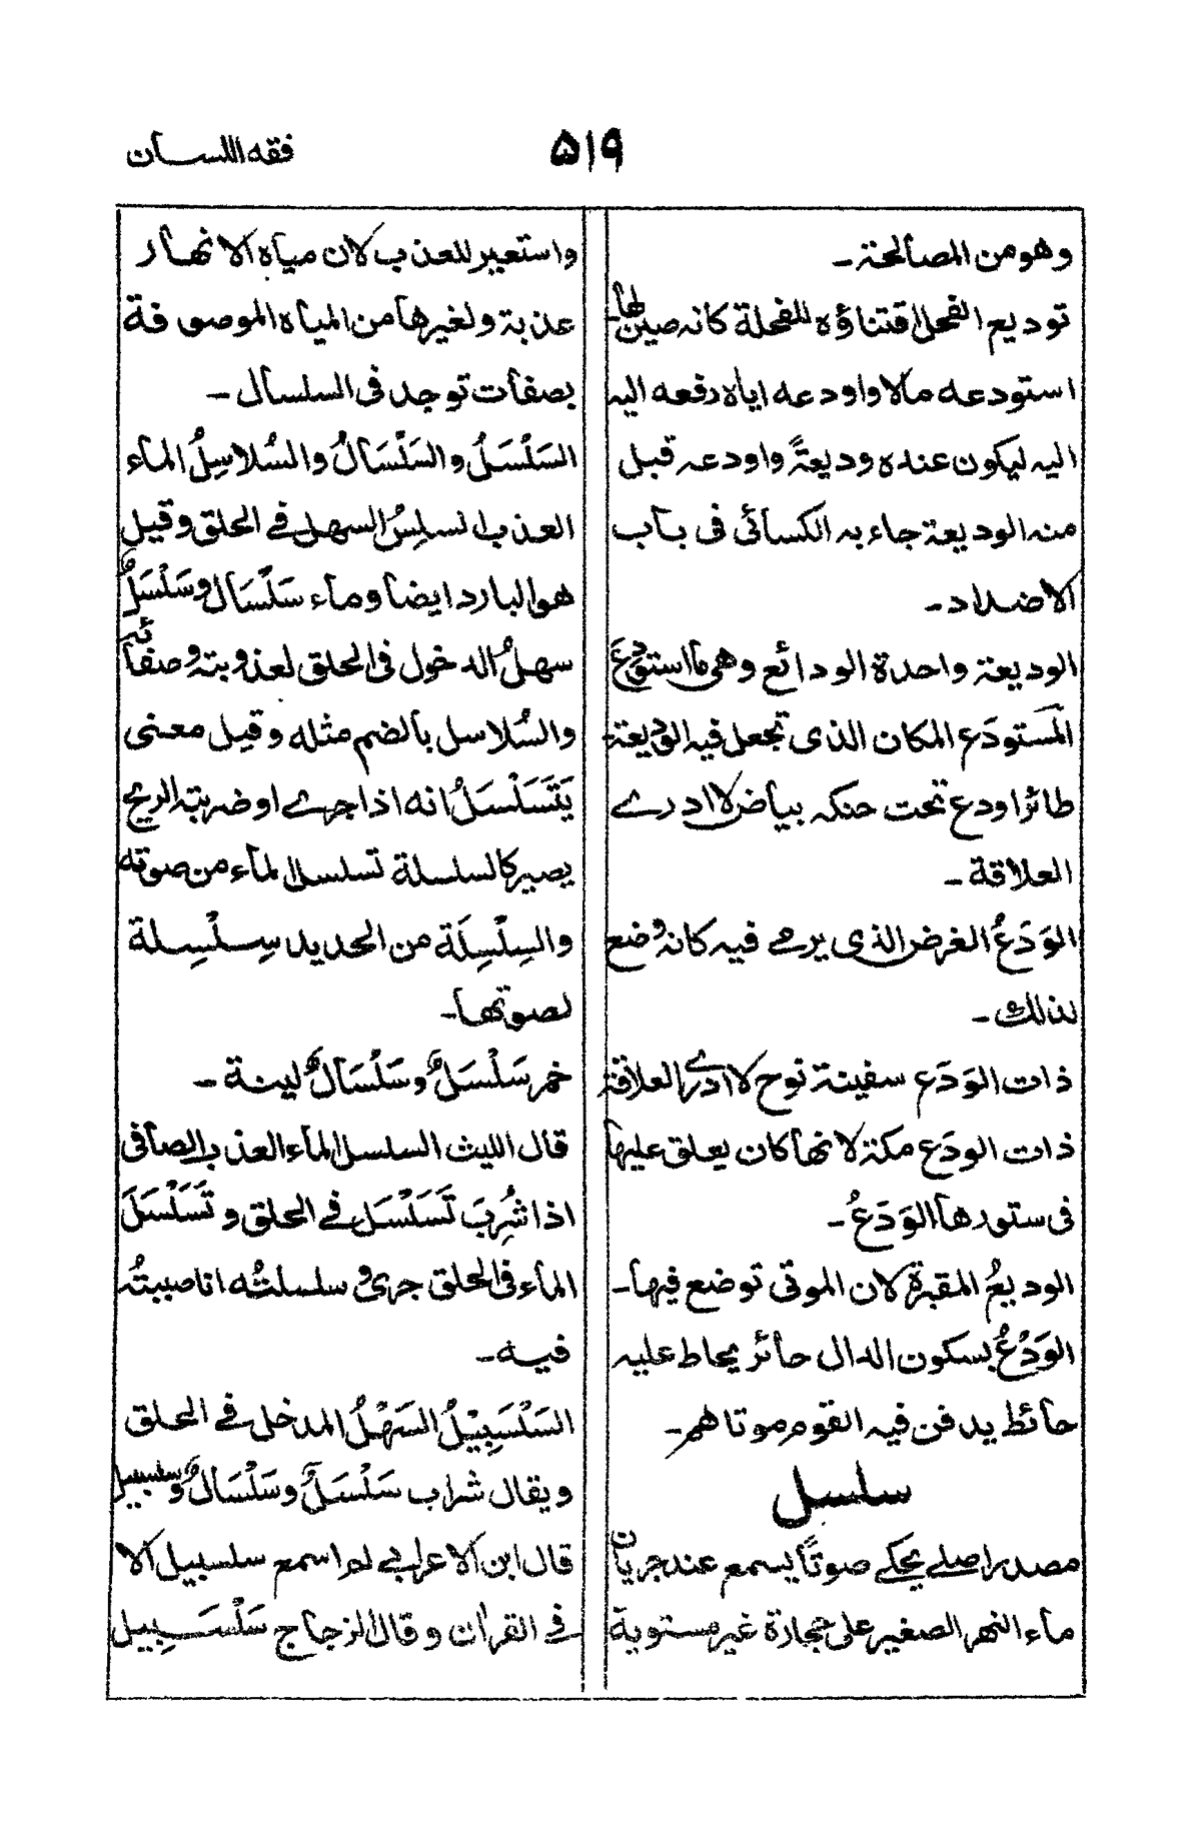 فقه اللسان
۵۱۹
وهو من المصالحة۔
توديع الفحل اقتناؤه للفحلة كانه صين لها۔
استودعه مالا واودعه اياه دفعه اليه
اليه ليكون عنده وديعةً واودعه قبل
منه الوديعة جاء به الكسائى فى باب
الاضداد۔
الوديعة واحدة الودائع وهى ما استودع
المستودَع المكان الذى تجعل فيه الوديعة
طائر اودع تحت حنكه بياض لا ادرے
العلاقة۔
الوَدَعُ الغرض الذى يرمے فيه كانه وضع
لذلك۔
ذات الوَدَع سفينة نوح لا ادرے العلاقة
ذات الودَع مكة لانها كان يعلق عليها
فى ستورها الوَدَعُ۔
الوديعُ المقبرة لان الموتى توضع فيها۔
الوَدْعُ بسكون الدال حائر يحاط عليه
حائط يدفن فيه القوم موتاهم۔
سلسل
مصدر اصلے يحكے صوتًا يسمع عند جريان
ماء النهر الصغير على حجارة غير مستوية
واستعير للعذب لان مياه الانهار
عذبة ولغيرها من المياه الموصوفة
بصفات توجد فى السلسال۔
السَلْسَلُ والسَلْسَالُ والسُلاسِلُ الماء
العذب السلِسُ السهل فے الحلق وقيل
هو البارد ايضا وماء سَلْسَال وسَلْسَلٌ
سهلُ الدخول فى الحلق لعذوبته وصفائه
والسُلاسل بالضم مثله وقيل معنى
يَتَسَلْسَلُ انه اذا جرے او ضربته الريح
يصير كالسلسلة تسلسل الماء من صوته
والسِلْسِلَة من الحديد سِلْسِلة
لصوتها۔
خمر سَلْسَلٌ وسَلْسَالٌ لينة۔
قال الليث السلسل الماء العذب الصافى
اذا شُرِبَ تَسَلْسَل فے الحلق وتَسَلْسَلَ
الماء فى الحلق جرى و سلسلتُه انا صببتُه
فيه۔
السَلْسَبِيْلُ السَهْلُ المدخل فے الحلق
ويقال شراب سَلْسَلٌ وسَلْسَالٌ وسلسبيل
قال ابن الاعرابے لم اسمع سلسبيل الا
فے القرأن وقال الزجاج سَلْسَبِيل